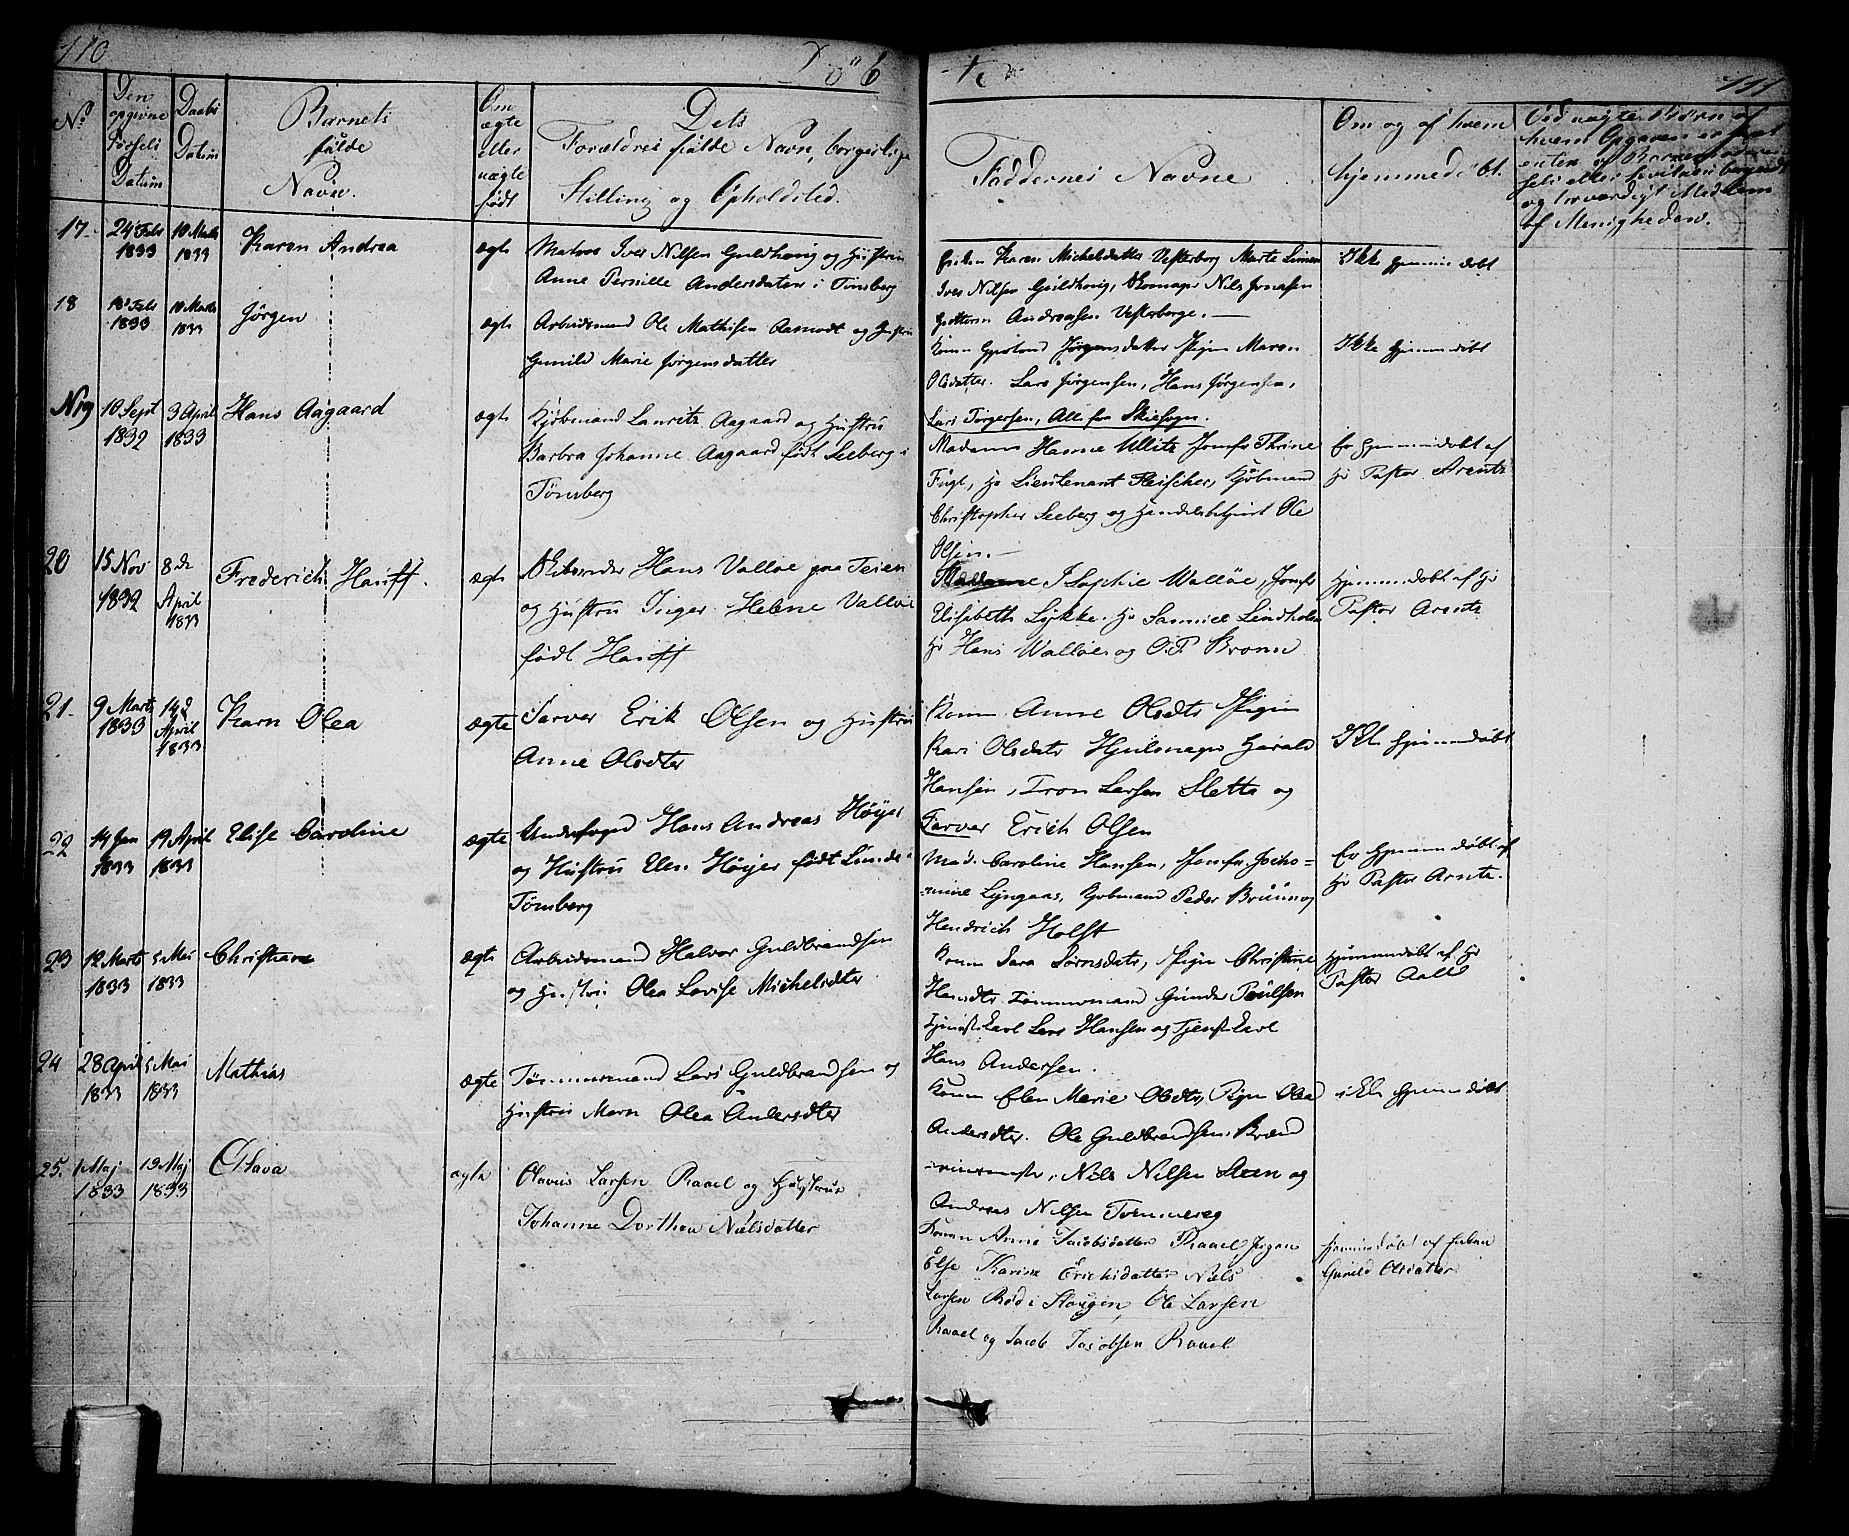 110
Döb
te
111
No
Den opgivne Fødsels Datum
Daabs Datum
Barnets fulde Navn.
Om ægte eller uægte født
Dets Forældres fulde Navn, borgerlige Stilling og Opholdsted.
Faddernes Navne
Om og af hvem hjemmedöbt.
Ved uægte Børn af
hvem Opgaven er skeet
enten af Barnemoderen
selv eller
og troværdigt Medlem
af Menigheden.
17.
24 Febr 1833
10 Marts 1833
Karen Andrea
ægte
Matros Iver Nilsen Guldhoug og Hustru
Anne Pernille Andersdatter i Tönsberg
Karen Michelsdatter Vesterborg Marte
Iver Nilsen Guldhoug, Nils Jonassen
Andreasen Vesterborge.
Ikke hjemmedöbt
18
18 Febr 1833
10 Marts 1833
Jørgen
ægte
Arbeidsmand Ole Mathisen Aamodt og Hustru
Gunild Marie Jørgensdatter
Konen Jørgensdatter Pigen Maren
Olsdatter. Lars Jørgensen, Hans Jørgensen,
Lars Torgersen, Alle fra Skiesogn.
Ikke hjemmedöbt
N 19
10 Sept 1832
3 April 1833
Hans Aagaard
ægte
Kjöbmand Lauritz Aagaard og Hustru
Barbra Johanne Aagaard født Seeberg i
Tönsberg
Madame Hanne Ullitz Jomfr Thrine
Fugl, Hr Lieutenant Fleischer, Kjöbmand
Christopher Seeberg og Handelsbetjent Ole
Olsen.
Er hjemmedöbt af
Hr Pastor Arentz
20
15 Nov 1832
8de April 1833
Frederich Hauff.
ægte
Skibsreder Hans Valløe paa Teien
og Hustru Inger Helene Valløe
født Hauff
Madame I Sophie Walløe, Jomfr
Elisabeth Lykke. Hr Samuel Lindholm
Hr Hans Walløe og O. P. Bronn
Hjemmedöbt af Hr
Pastor Arentz
21.
9 Marts 1833
14d April 1833
Karn Olea
ægte
Farver Erik Olsen og Hustru
Anne Olsdter
Konen Anne Olsdtr Pigen
Kari Olsdatr Hjulmager Harald
Hansen, Iron Larsen Sletta og
Farver Erich Olsen
Ikke hjemmedöbt
22
14 Jan 1833
19 April 1833
Elise Caroline
ægte
Underfoged Hans Andreas Höyer
og Hustru Elen Höyer født Lunde i
Tönsberg
Mad. Caroline Hansen, Jomfr. Jocho=
mine Lyngaas, Kjöbmand Peder Bruun og
Hendrich Holst
Er hjemmedöbt af
Hr Pastor Arntz.
23
12 Marts 1833
5 Mai 1833
Christiane
ægte
Arbeidsmand Halvor Guldbrandsen
og Hustru Olea Lovise Michelsdter
Konen Sara Sörnsdatr, Pigen Christine
Hansdtr. Tömmermand Gunder Poulsen
Tjeneste Karl Lars Hansen og Tjenst Karl
Hans Andersen.
Hjemmedöbt af Hr
Pastor Aall
24
28 April 1833
5 Mai 1833
Mathias
ægte
Tömmermand Lars Guldbrandsen og
Hustru Maren Olea Andersdter
Konen Elen Marie Olsdtr, Pigen Olea
Andersdter. Ole Guldbrandsen, Brænd
, Nils Nilsen Steen og
Andreas Nilsen
Ikke hjemmedöbt
25.
1 Maj 1833
19 Maj 1833
Olava
ægte
Olavus Larsen Raael og Hustrue
Johanne Dorthea Nielsdatter
Konen Anne Jacobsdatter Raael, Pigen
Else Karine Erichsdatter, Niels
Larsen Röd i Skougen, Ole Larsen
Raael og Jacob Jacobsen Raael
hjemmedöbt af Enken
Gunild Olsdatter